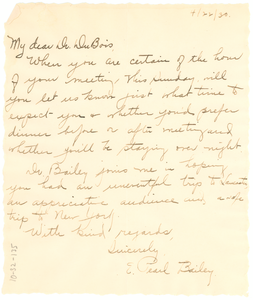 4/22/29.
My dear Dr. DuBois,
When you are certain of the hour
of your meeting this Sunday, will
you let us know just what time to
expect you & whether you'd prefer
dinner before or after meeting and
whether you'll be staying over night
Dr. Bailey joins me in hoping
you had an uneventful trip to
an appreciative audience and a safe
trip to New York.
With kind regards,
Sincerely
E. Pearl Bailey